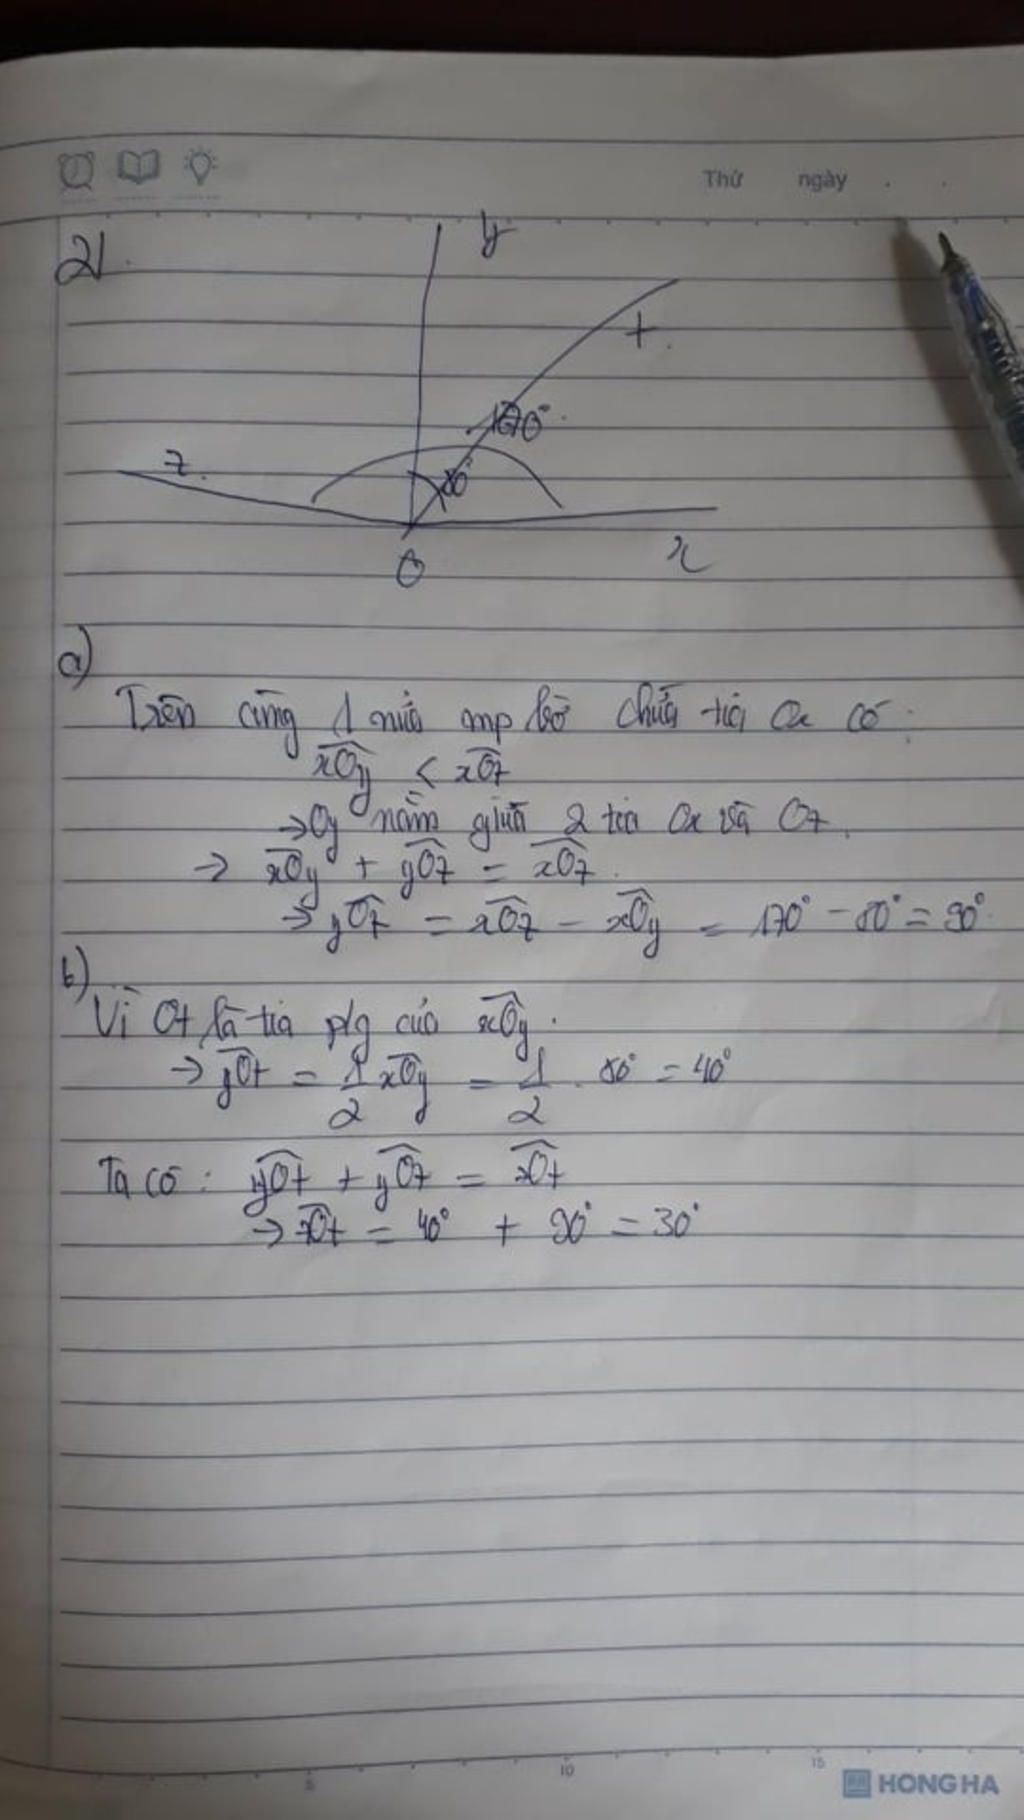 Thứ ngày
2)
y
t
170°
z
80°
O
x
a)
Trên cùng 1 nửa mp bờ chứa tia Ox có:
xOy < xOz
→ Oy nằm giữa 2 tia Ox và Oz.
→ xOy + yOz = xOz.
→ yOz = xOz - xOy = 170° - 80° = 90°
b)
Vì Ot là tia p/g của xOy.
→ yOt = 1/2 xOy = 1/2 . 80° = 40°
Ta có: yOt + yOz = zOt
→ zOt = 40° + 90° = 30°
5 10 15
HONG HA